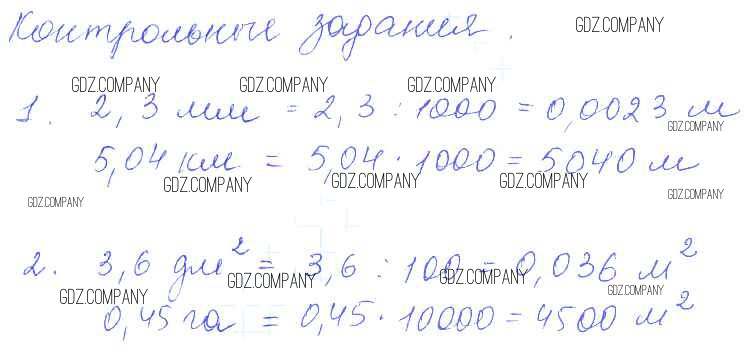 Контрольные задания. GDZ.COMPANY
GDZ.COMPANY GDZ.COMPANY GDZ.COMPANY
1. 2,3 мм = 2,3 : 1000 = 0,0023 м
GDZ.COMPANY
5,04 км = 5,04 · 1000 = 5040 м
GDZ.COMPANY GDZ.COMPANY GDZ.COMPANY
GDZ.COMPANY GDZ.COMPANY
2. 3,6 дм² = 3,6 : 100 = 0,036 м²
GDZ.COMPANY GDZ.COMPANY
GDZ.COMPANY GDZ.COMPANY
0,45 га = 0,45 · 10000 = 4500 м²